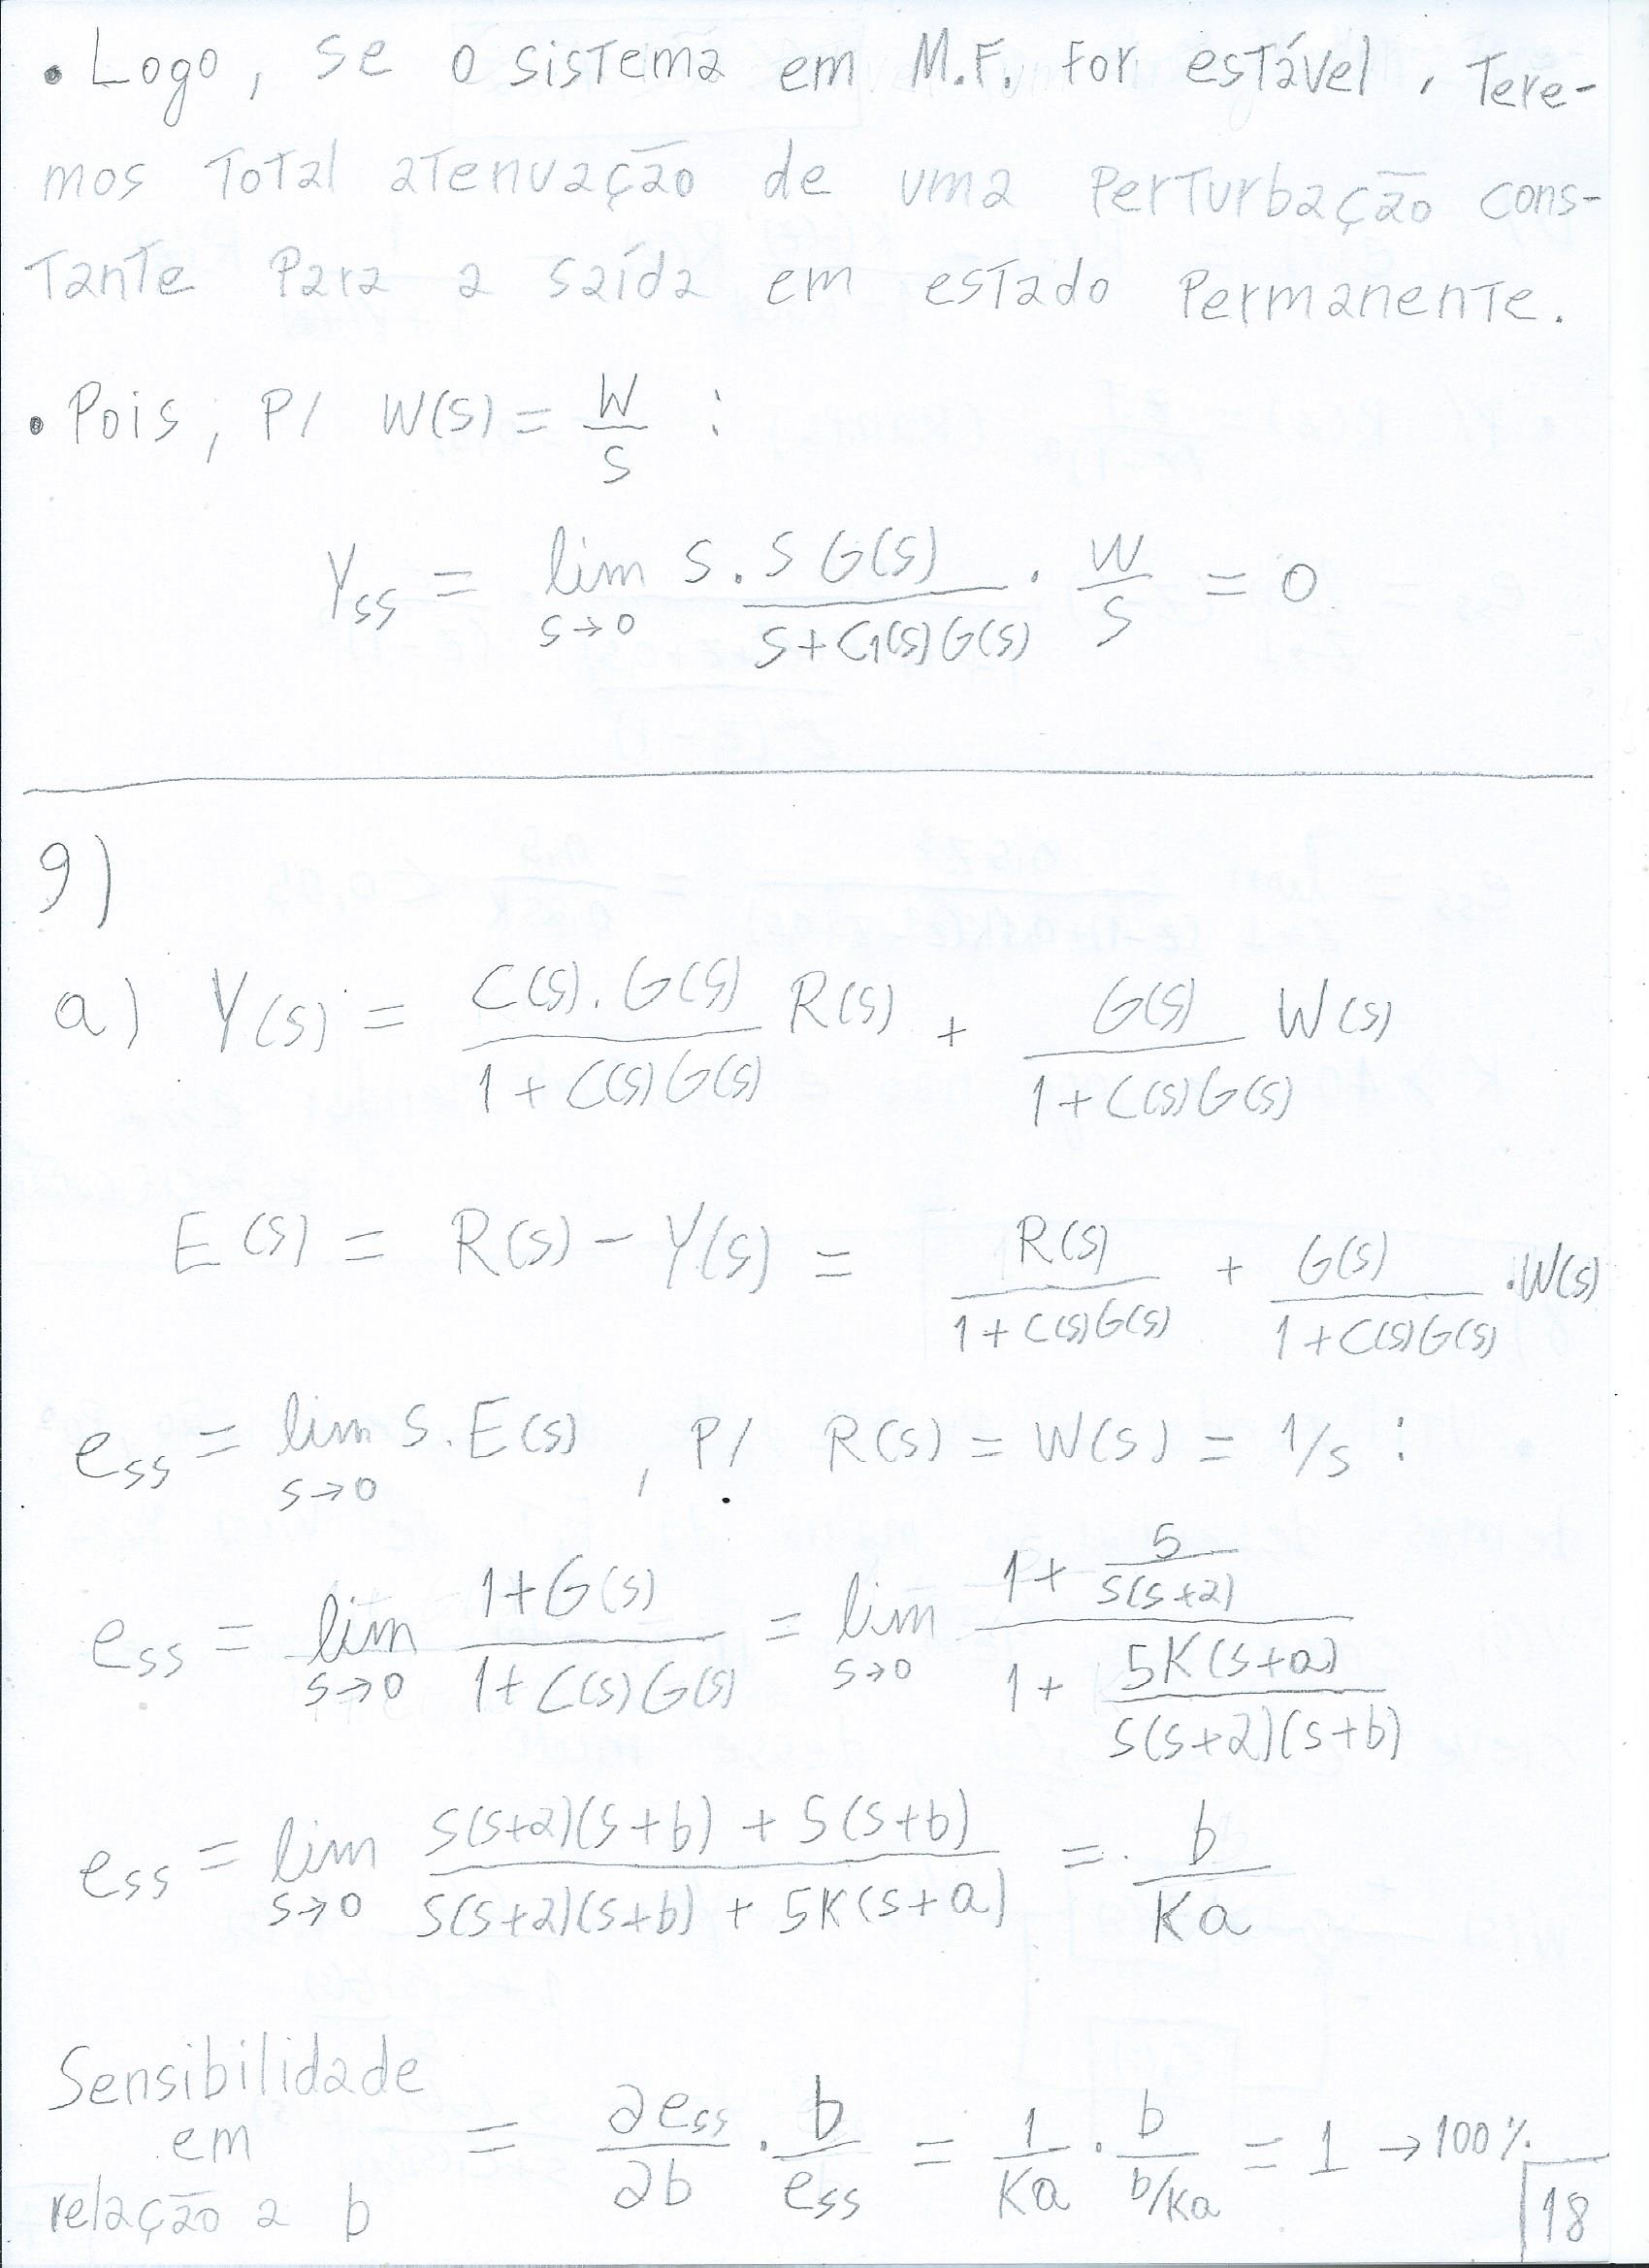 • Logo, se o sistema em M.F. for estável, Tere-
mos Total atenuação de uma Perturbação cons-
tante Para a saída em estado Permanente.
• Pois, P/ W(s) = W/s :
Yss = lim s→0 s . s G(s) / (s + C1(s) G(s)) . W/s = 0
9)
a) Y(s) = C(s) . G(s) / (1 + C(s) G(s)) R(s) + G(s) / (1 + C(s) G(s)) W(s)
E(s) = R(s) - Y(s) = R(s) / (1 + C(s) G(s)) + G(s) / (1 + C(s) G(s)) . W(s)
ess = lim s→0 s . E(s) , P/ R(s) = W(s) = 1/s :
ess = lim s→0 (1 + G(s)) / (1 + C(s) G(s)) = lim s→0 (1 + 5 / (s(s+2))) / (1 + 5K(s+a) / (s(s+2)(s+b)))
ess = lim s→0 (s(s+2)(s+b) + 5(s+b)) / (s(s+2)(s+b) + 5K(s+a)) = b / Ka
Sensibilidade
em
relação a b
= ∂ess/∂b . b/ess = 1/Ka . b/(b/Ka) = 1 → 100%
18